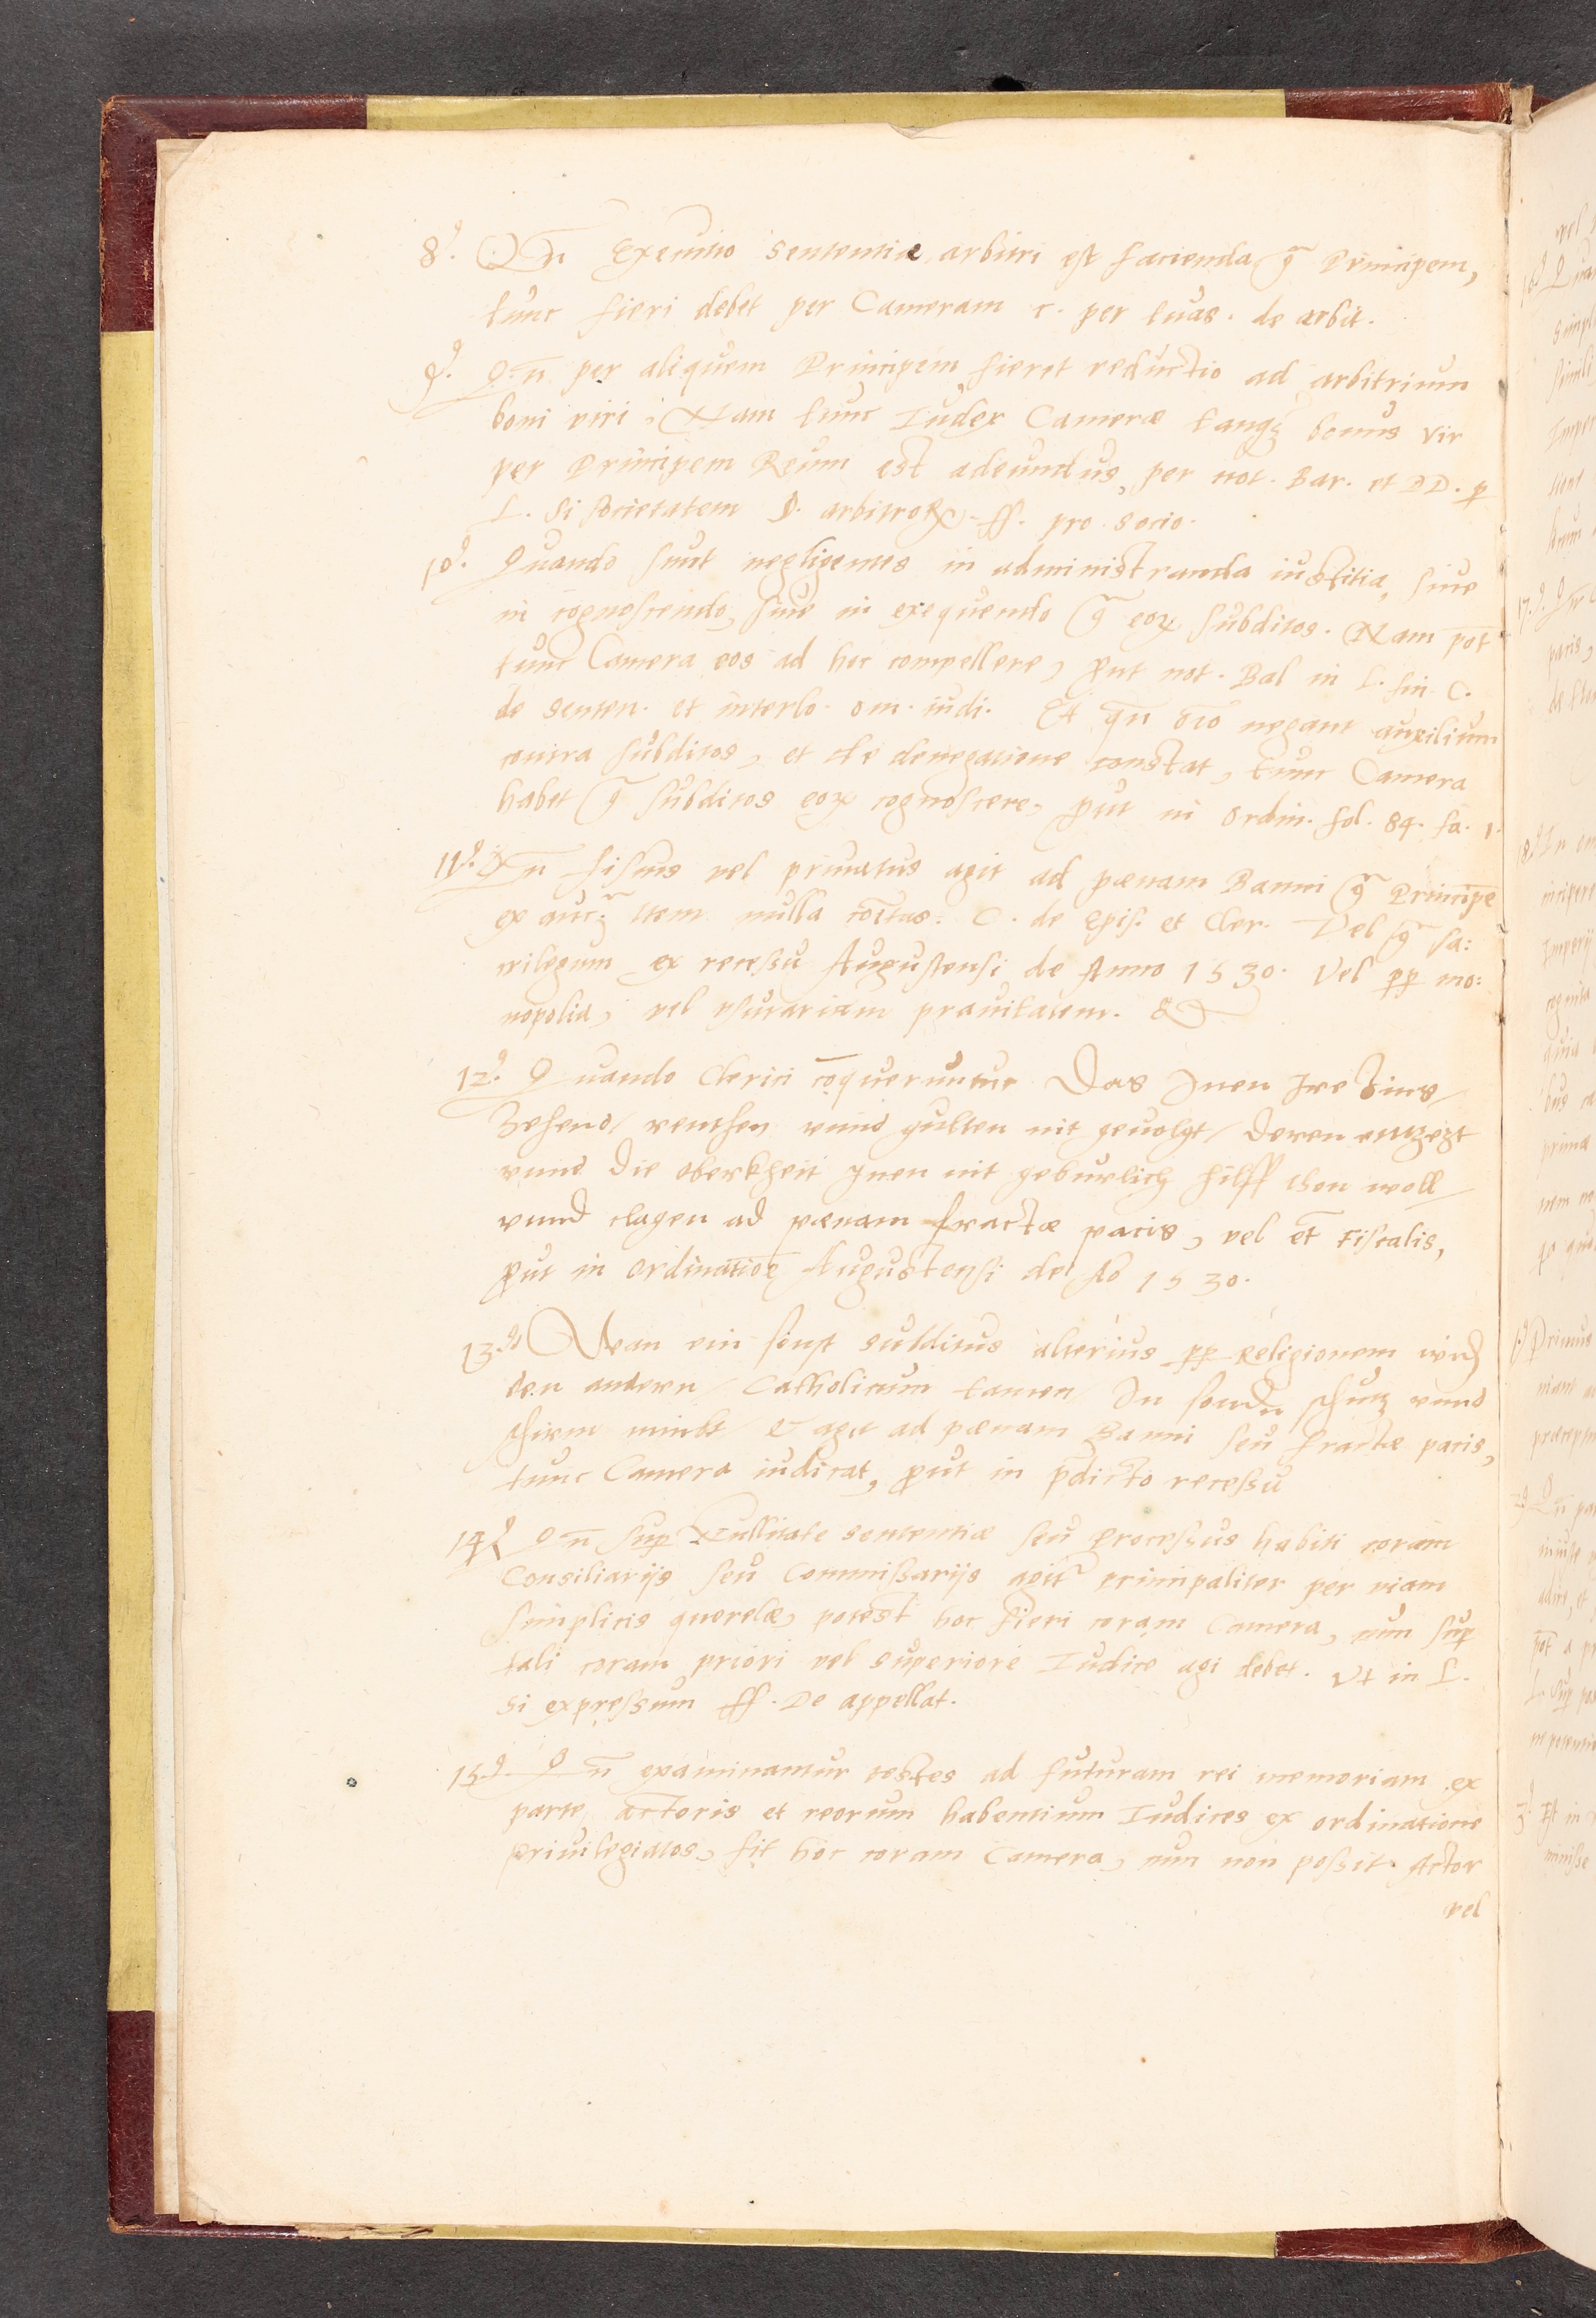 8º. Qn̄ Executio sententiæ arbitri est facienda gͣ Principem,
tunc fieri debet per Cameram c. per tuas. de arbit.
9º. Qn̄ per aliquem Principem fieret reductio ad arbitrium
boni viri, Nam tunc Iudex Cameræ tanqꝫ bonus vir
per Principem Reum est adeundus, per not. Bar. et DD. p
L. Si societatem §. arbitroꝝ. ff. pro socio.
10º. Quando sunt negligentes in administranda iustitia, siue
in cognoscendo, siue in exequendo gͣ eoꝝ subditos. Nam pōt
tunc Camera eos ad hoc compellere, ꝓut not. Bal in L. fin C.
de senten. et interlo. om. iudi. Et qn̄ oīo negant auxilium
contra subditos, et de denegatione constat, tunc Camera
habet gͣ subditos eoꝝ cognoscere, ꝓut in ordin. fol. 84. fa. 1.
11º. Qn̄ fiscus vel priuatus agit ad pœnam Banni gͣ Principē
ex auc. Item nulla cōītas. C. de Epis. et Cler. Vel gͣ sa:
crilegum ex recessu Augustensi de Anno 1530. Vel ꝓꝑ mo:
nopolia, vel vsurariam prauitatem. &c
12º. Quando Clerici cōqueruntur Das Inen Ire Zins/
Zehend/ renthen vnnd gulten nit geuolgt/ deren entzezt
vnnd die oberkheit Inen nit geburlich hilff thon woll/
vnnd clagen ad pœnam fractæ pacis, vel et̄ Fiscalis,
ꝓut in ordinatiōe Augustensi de Aō 1530.
13º Wan ein sonst subditus alterius ꝓꝑ Religionem wid
den andern/ Catholicum tamen/ In sondn schutz vnnd
schirm nimbt/ & agit ad pœnam Banni seu fractæ pacis,
tunc Camera iudicat, ꝓut in p̄dicto recessu
14º Qn̄ suꝑ Nullitate sententiæ seu processus habiti coram
Consiliarijs seu Commissarijs agitʳ principaliter per viam
simplicis querelæ, potest hoc fieri coram Camera, cum suꝑ
tali coram priori vel superiore Iudice agi debet. Vt in L.
Si expressum ff. De appellat.
15º. Qn̄ examinantur testes ad futuram rei memoriam ex
parte actoris et reorum habentium Iudices ex ordinatione
priuilegiatos, fit hoc coram Camera, cum non possit Actor
vel